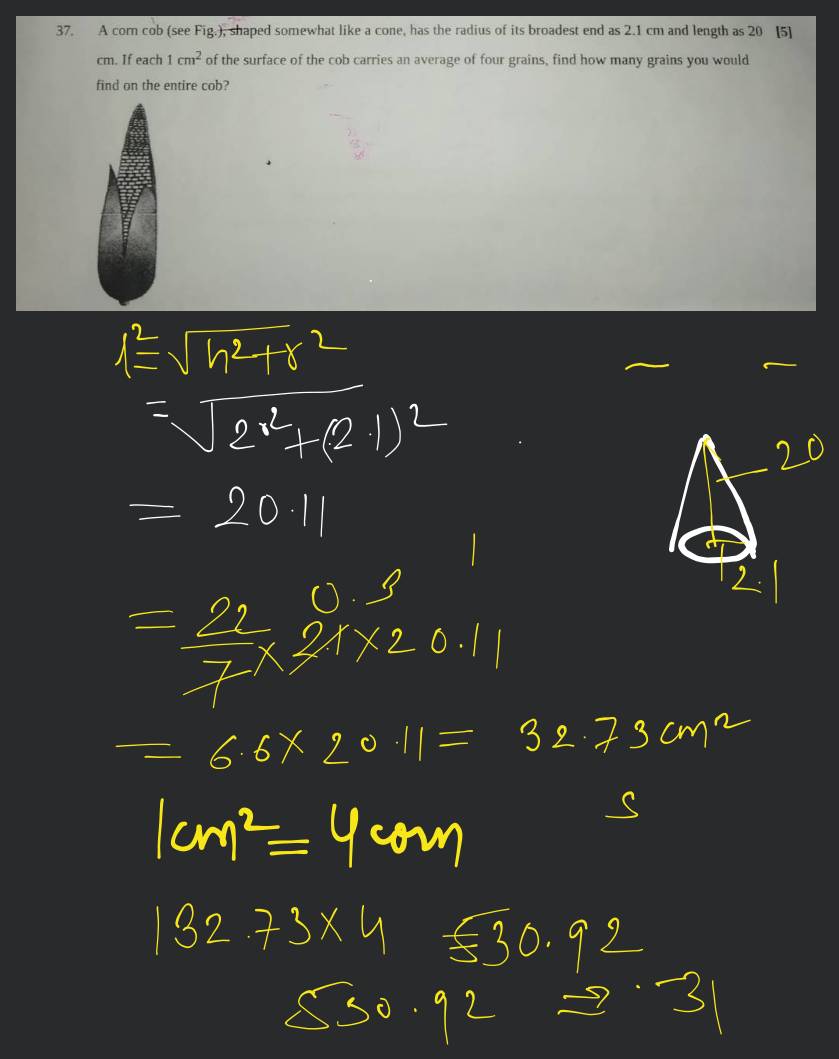 37. A corn cob (see Fig.), shaped somewhat like a cone, has the radius of its broadest end as 2.1 cm and length as 20 [5]
cm. If each 1 cm² of the surface of the cob carries an average of four grains, find how many grains you would
find on the entire cob?
l² = √h²+r²
= √2r²+(2.1)²
20
= 20.11
2.1
0.3
= 22/7 × 2.1 × 20.11
= 6.6 × 20.11 = 32.73 cm²
S
1cm² = 4 corn
132.73 × 4 530.92
530.92 ⇒ .31